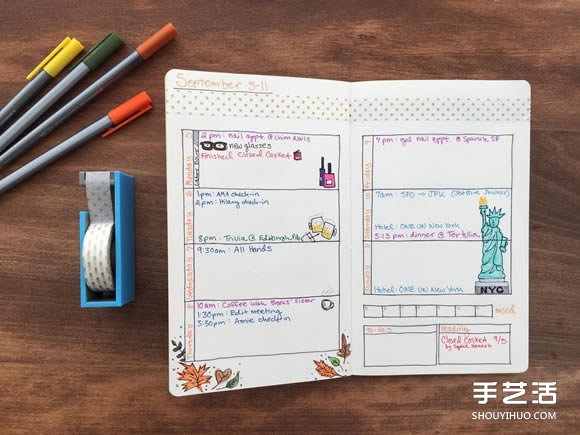 September 5-11
5
Monday
2pm: nail appt. @ Unim Nails
new glasses
Finished Closed Casket
6
Tuesday
1pm: AMA check-in
2pm: Hilary check-in
8pm: Trivia @ Edinburgh
7
Wednesday
9:30am: All Hands
8
Thursday
10am: Coffee with Boris' sister
1:30pm: Edit meeting
3:30pm: Annie check-in
9
7pm: gel nail appt. @ Sparkle SF
10
7am: SFO → JFK
Hotel: ONE UN New York
5:15 pm: dinner @
Hotel: ONE UN New York
NYC
mood
to-do
reading:
Closed Casket 9/5
by Sophie Hannah
手艺活
SHOUYIHUO.COM